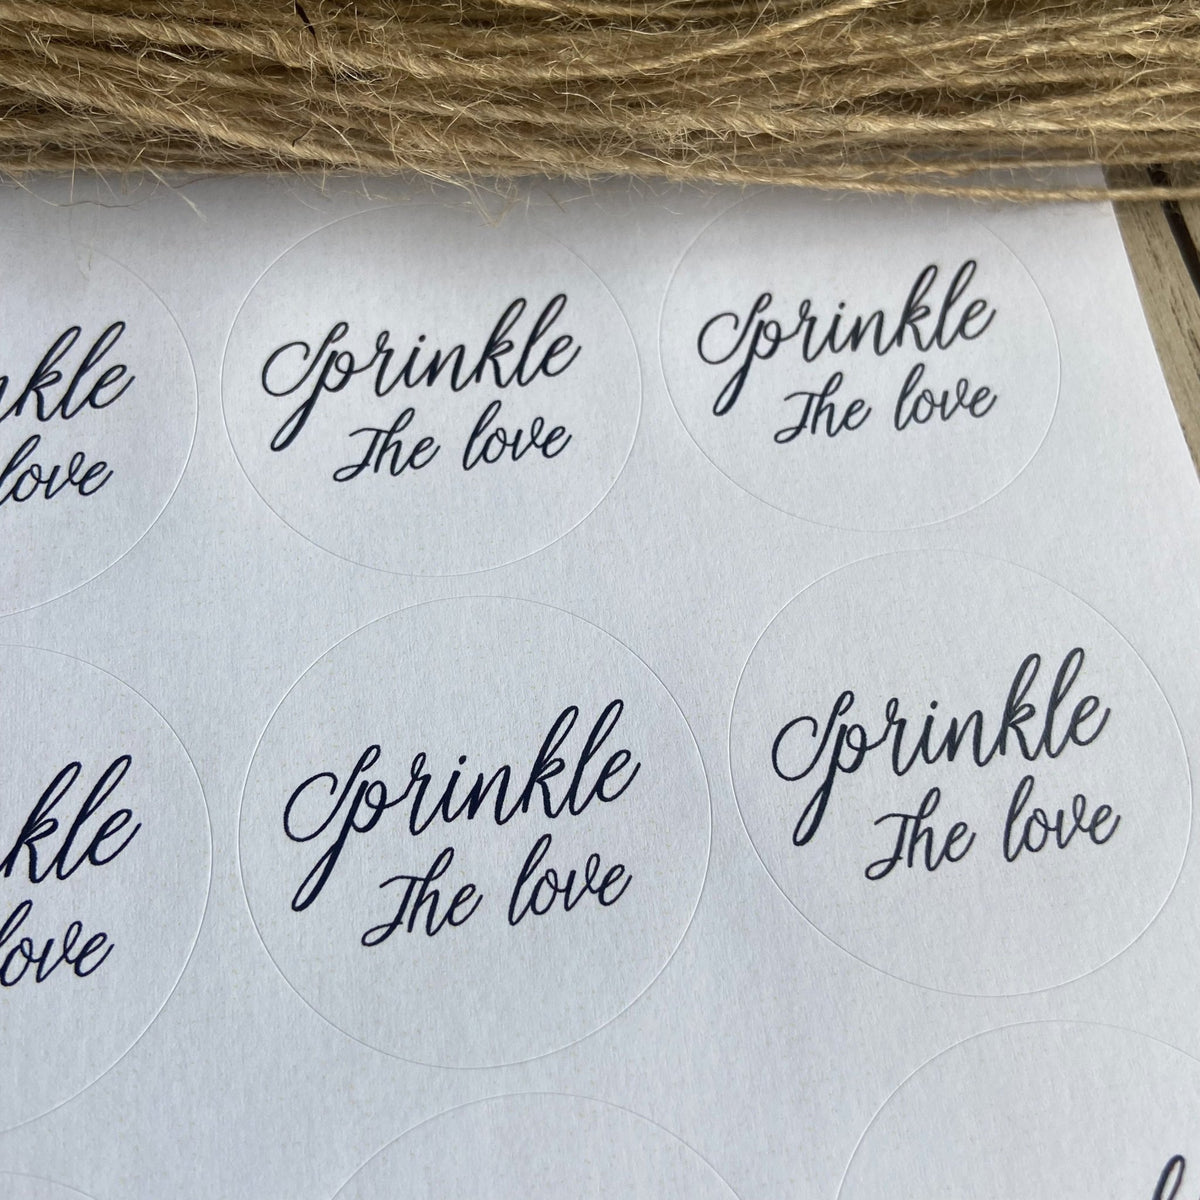 nkle
love
Sprinkle
The love
Sprinkle
The love
kle
love
Sprinkle
The love
Sprinkle
The love